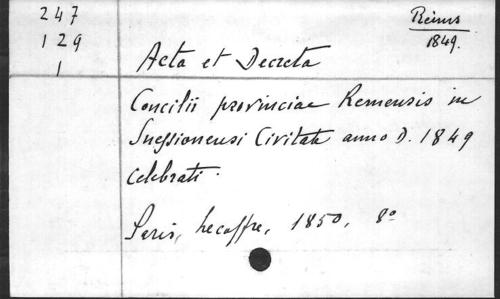 247
129
1
Reims
1849.
Acta et Decreta
Concilii provinciae Remensis in
Suessionensi Civitate anno D. 1849
celebrati.
Paris, Lecoffre, 1850, 8º